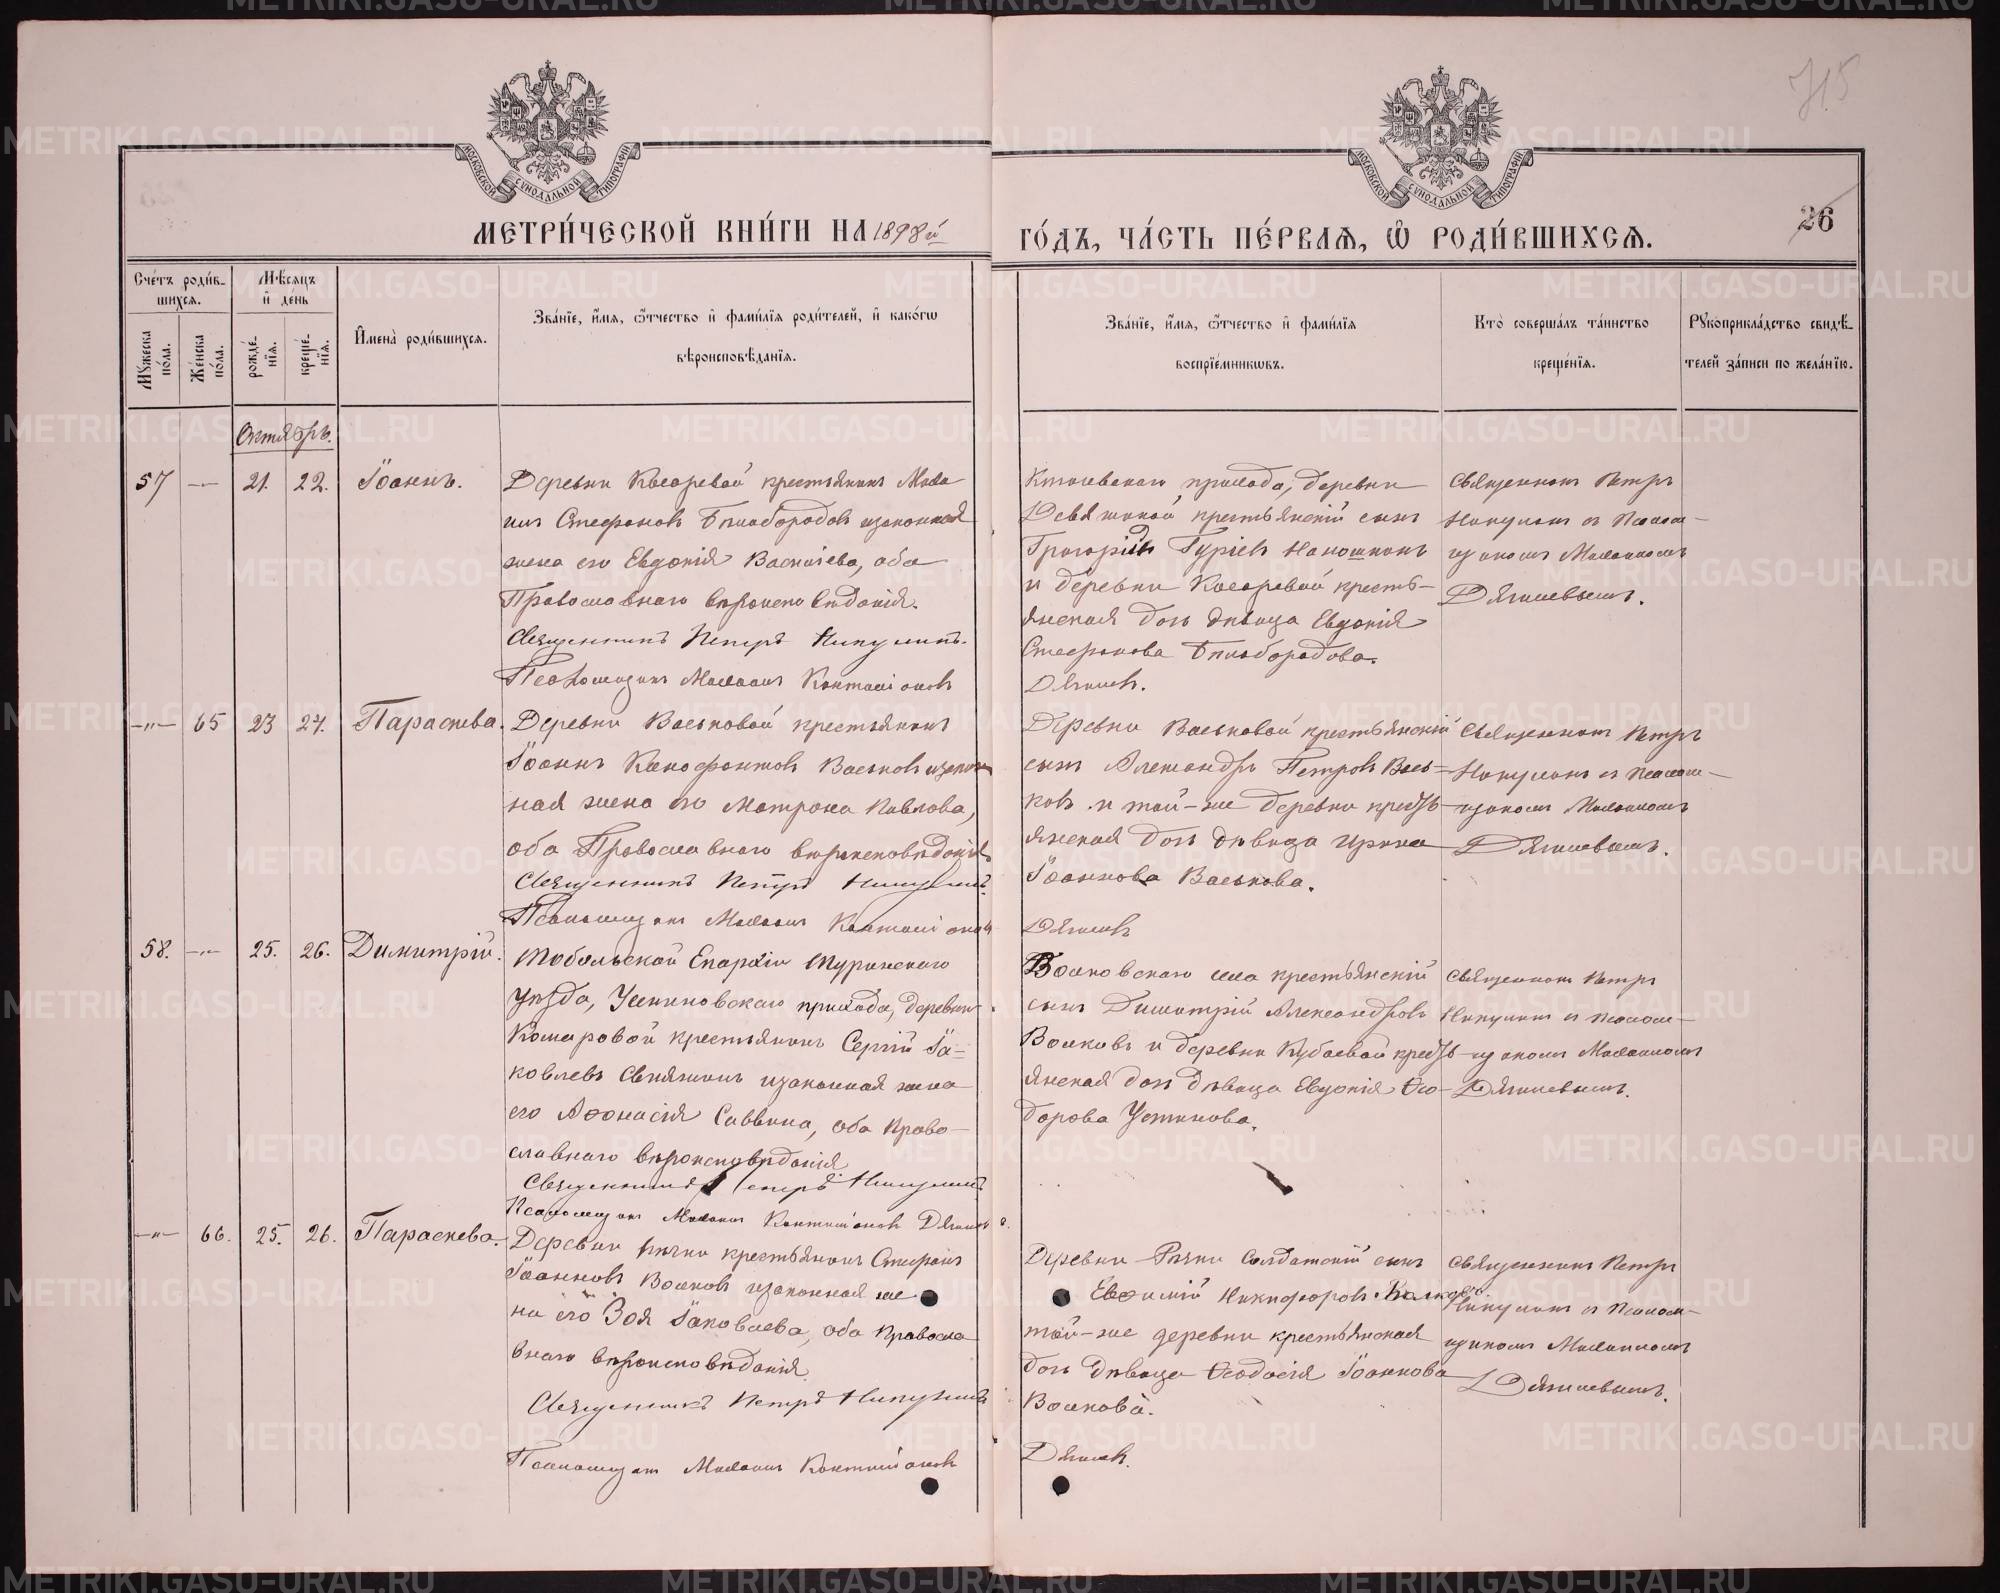 715
26
МЕТРИ́ЧЕСКОЙ КНИ́ГИ НА 1898й
ГО́ДЪ, ЧА́СТЬ ПЕ́РВАѦ, Ѿ РОДИ́ВШИХСѦ.
Сче́тъ роди́в-
шихсѧ.
Мꙋжеска по́ла.
Же́нска по́ла.
Мѣ́сѧцъ и де́нь
рожде́нїѧ.
креще́нїѧ.
Имена̀ роди́вшихсѧ.
Зва́нїе, и́мѧ, ѻ́тчество и фами́лїѧ роди́телей, и како́гѡ
вѣроисповѣ́данїѧ.
Зва́нїе, и́мѧ, ѻ́тчество и фами́лїѧ
воспрїе́мникѡвъ.
Кто̀ соверша́лъ та́инство
креще́нїѧ.
Рꙋкоприкла́дство свидѣ́-
телей за́писи по жела́нїю.
Октябрь.
57 — 21. 22. Іоаннъ.
Деревни Косаревой крестьянинъ
Стефановъ Бѣлобородовъ и законная
жена его Евдокія Васильева, оба
Православнаго вѣроисповѣданія.
Священникъ Петръ Никулинъ.
Псаломщикъ
прихода, деревни
крестьянскій сынъ
Григорій Гуріевъ
и деревни Косаревой кресть-
янская дочь дѣвица Евдокія
Стефанова Бѣлобородова.
Дягилевъ.
Священникъ Петръ
Никулинъ съ псалом-
щикомъ
Дягилевымъ.
—"— 65 23 27. Параскева.
Деревни Васьковой крестьянинъ
Іоаннъ Васьковъ и закон
ная жена его Матрона Павлова,
оба Православнаго вѣроисповѣданія
Священникъ Петръ Никулинъ.
Псаломщикъ
Деревни Васьковой крестьянскій
сынъ Александръ Петровъ Вась=
ковъ и той-же деревни кресть-
янская дочь дѣвица Ирина
Іоаннова Васькова.
Дягилевъ
Священникъ Петръ
Никулинъ съ псалом-
щикомъ
Дягилевымъ.
58. — 25. 26. Димитрій.
Тобольской Епархіи Туринскаго
Уѣзда, прихода, деревни
Комаровой крестьянинъ Сергій Іа-
ковлевъ и законная жена
его Аѳанасія Саввина, оба Право-
славнаго вѣроисповѣданія
Священникъ Петръ Никулинъ
Псаломщикъ Дягилевъ
Волковскаго села крестьянскій
сынъ Димитрій Александровъ
Волковъ и деревни Кубаевой кресть-
янская дочь дѣвица Евдокія Ѳео-
дорова Устинова.
Священникъ Петръ
Никулинъ съ псалом-
щикомъ
Дягилевымъ.
—"— 66. 25. 26. Параскева.
Деревни Рѣчки крестьянинъ Стефанъ
Іоанновъ Волковъ и законная же
на его Зоя Іаковлева, оба Правосла
внаго вѣроисповѣданія
Священникъ Петръ Никулинъ
Псаломщикъ
Деревни Рѣчки солдатскій сынъ
Евѳимій Никифоровъ Волковъ
той-же деревни крестьянская
дочь дѣвица Ѳеодосія Іоаннова
Волкова.
Дягилевъ.
Священникъ Петръ
Никулинъ съ псалом-
щикомъ
Дягилевымъ.
METRIKI.GASO-URAL.RU